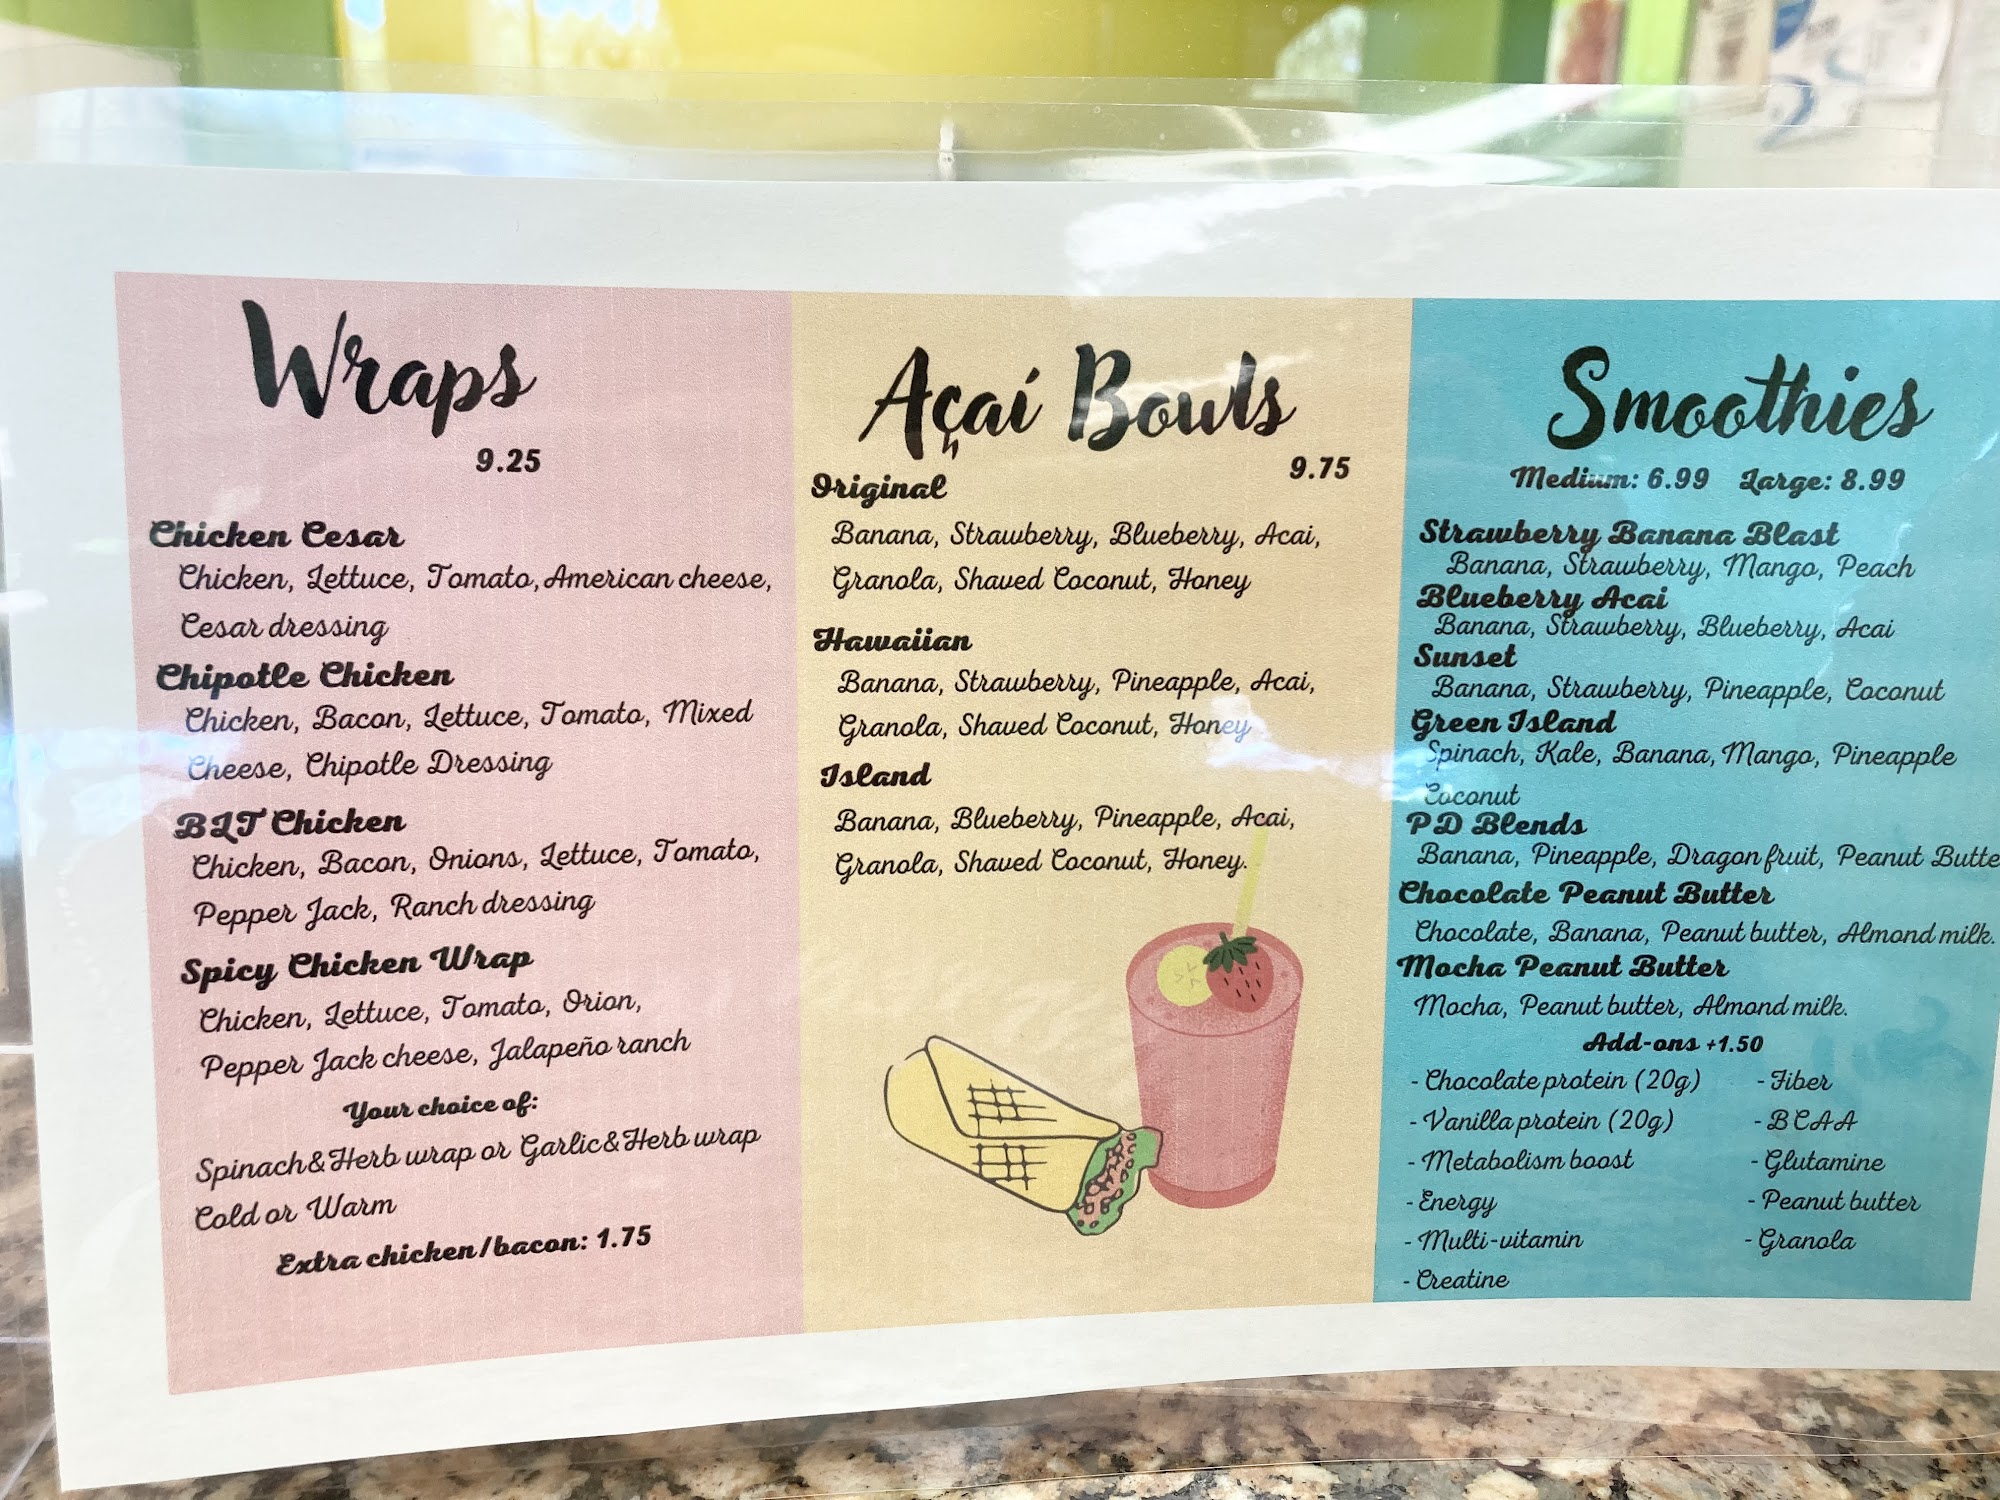 Wraps
9.25
Chicken Cesar
Chicken, Lettuce, Tomato, American cheese,
Cesar dressing
Chipotle Chicken
Chicken, Bacon, Lettuce, Tomato, Mixed
Cheese, Chipotle Dressing
BLT Chicken
Chicken, Bacon, Onions, Lettuce, Tomato,
Pepper Jack, Ranch dressing
Spicy Chicken Wrap
Chicken, Lettuce, Tomato, Orion,
Pepper Jack cheese, Jalapeño ranch
Your choice of:
Spinach&Herb wrap or Garlic&Herb wrap
Cold or Warm
Extra chicken/bacon: 1.75
Açaí Bowls
9.75
Original
Banana, Strawberry, Blueberry, Acai,
Granola, Shaved Coconut, Honey
Hawaiian
Banana, Strawberry, Pineapple, Acai,
Granola, Shaved Coconut, Honey
Island
Banana, Blueberry, Pineapple, Acai,
Granola, Shaved Coconut, Honey.
Smoothies
Medium: 6.99 Large: 8.99
Strawberry Banana Blast
Banana, Strawberry, Mango, Peach
Blueberry Acai
Banana, Strawberry, Blueberry, Acai
Sunset
Banana, Strawberry, Pineapple, Coconut
Green Island
Spinach, Kale, Banana, Mango, Pineapple
Coconut
PD Blends
Banana, Pineapple, Dragon fruit, Peanut Butte
Chocolate Peanut Butter
Chocolate, Banana, Peanut butter, Almond milk.
Mocha Peanut Butter
Mocha, Peanut butter, Almond milk.
Add-ons +1.50
- Chocolate protein (20g) - Fiber
- Vanilla protein (20g) - BCAA
- Metabolism boost - Glutamine
- Energy - Peanut butter
- Multi-vitamin - Granola
- Creatine